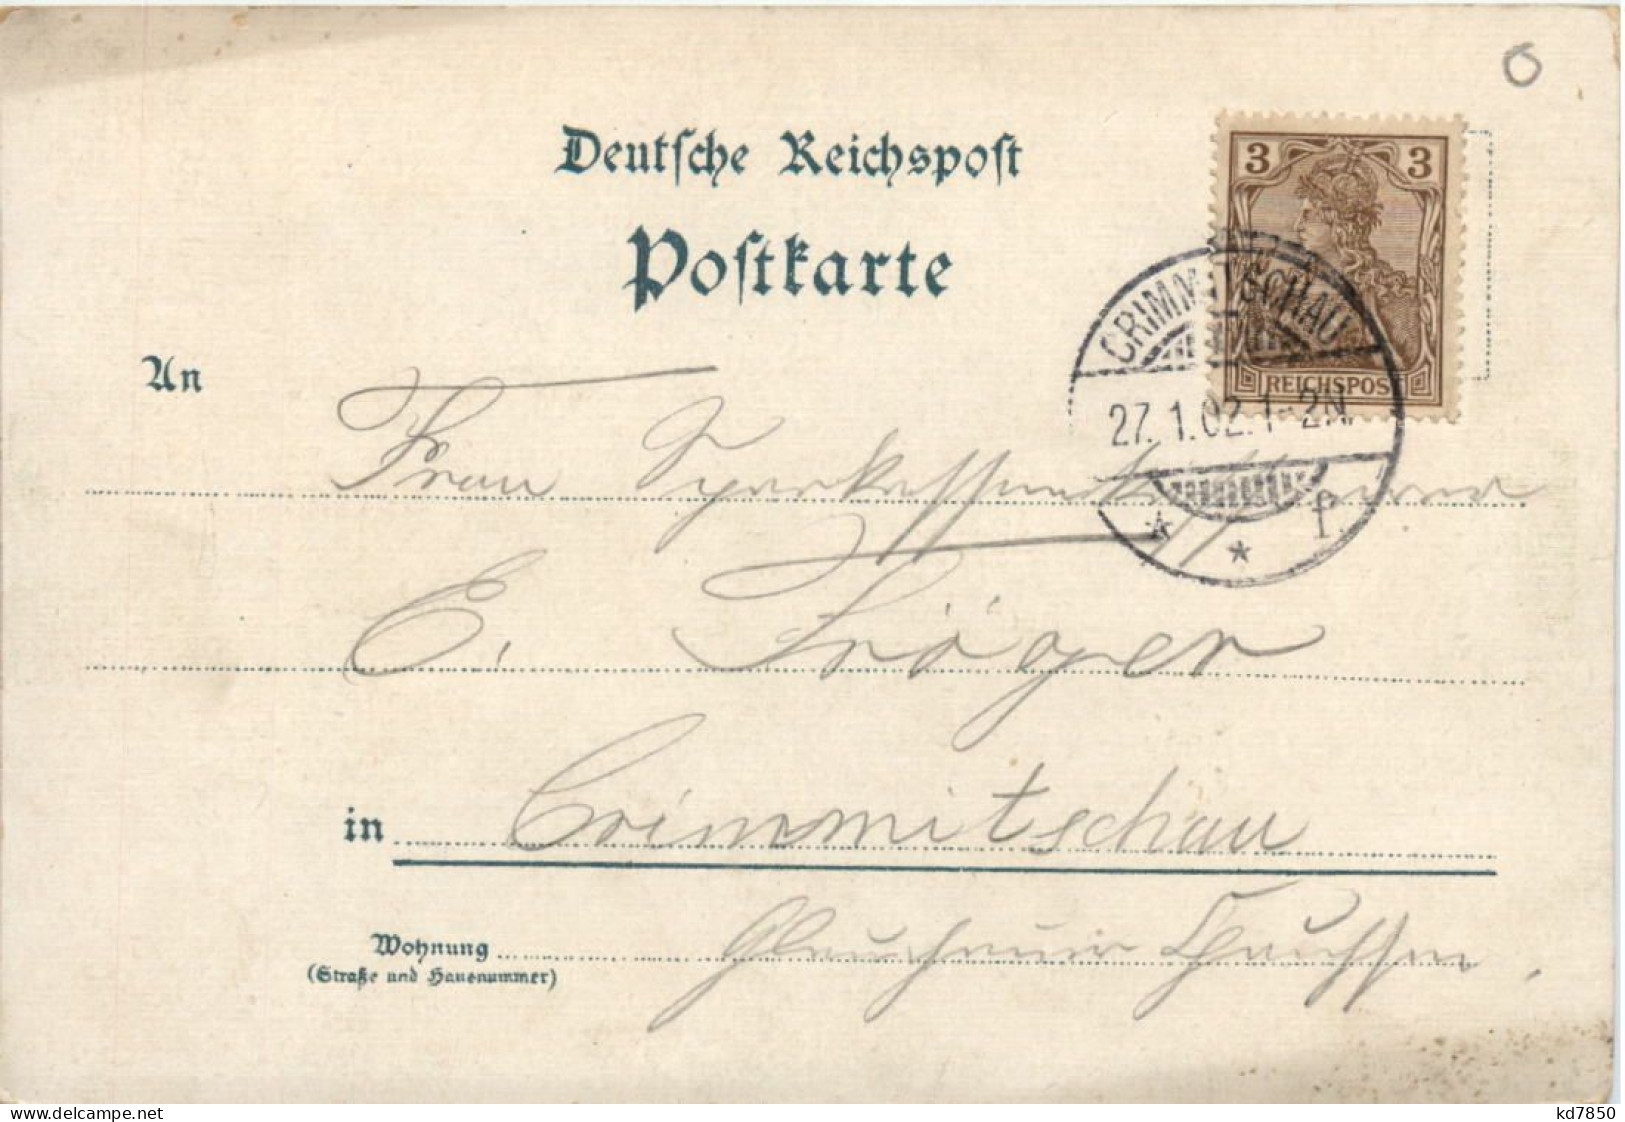 Deutsche Reichspost
Postkarte
3 3
REICHSPOST
CRIMMITSCHAU
27.1.02.1-2N.
* * f.
An
Frau
E. Tröger
in Crimmitschau
Wohnung
(Straße und Hausnummer)
www.delcampe.net
kd7850